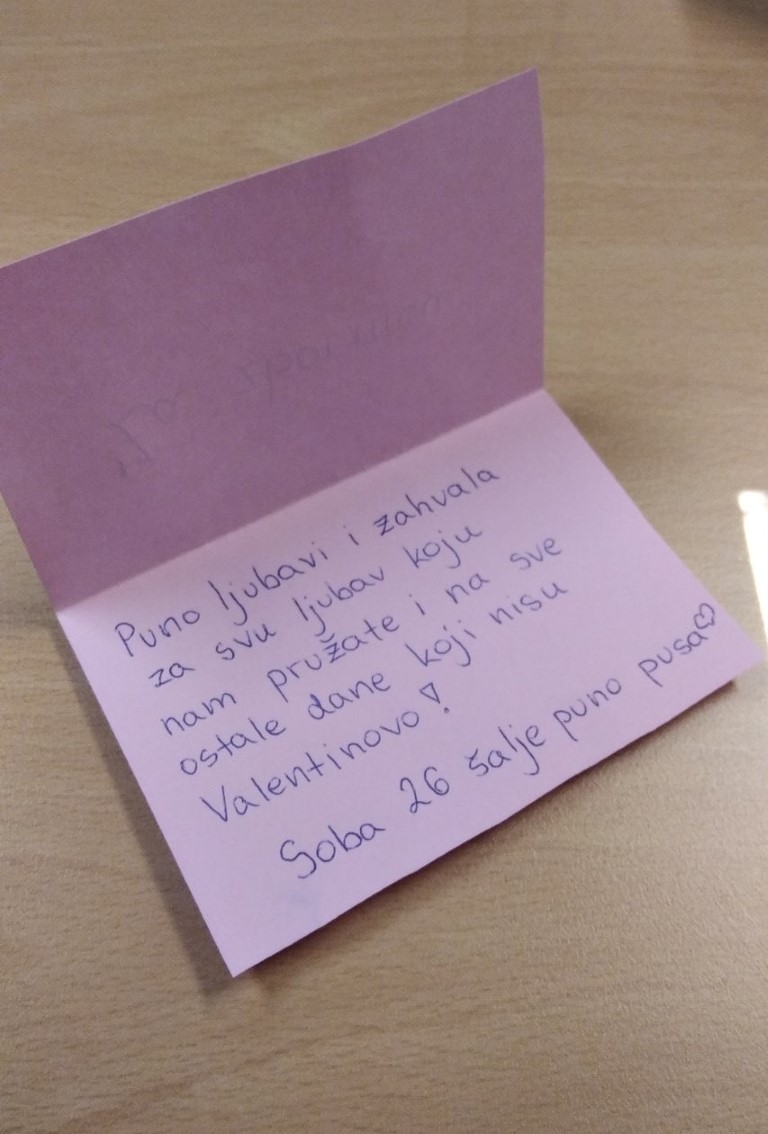 Puno ljubavi i zahvala
za svu ljubav koju
nam pružate i na sve
ostale dane koji nisu
Valentinovo!
Soba 26 šalje puno pusa♡